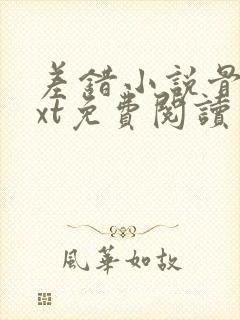 差錯小說最
xt免費閱讀
風華如故